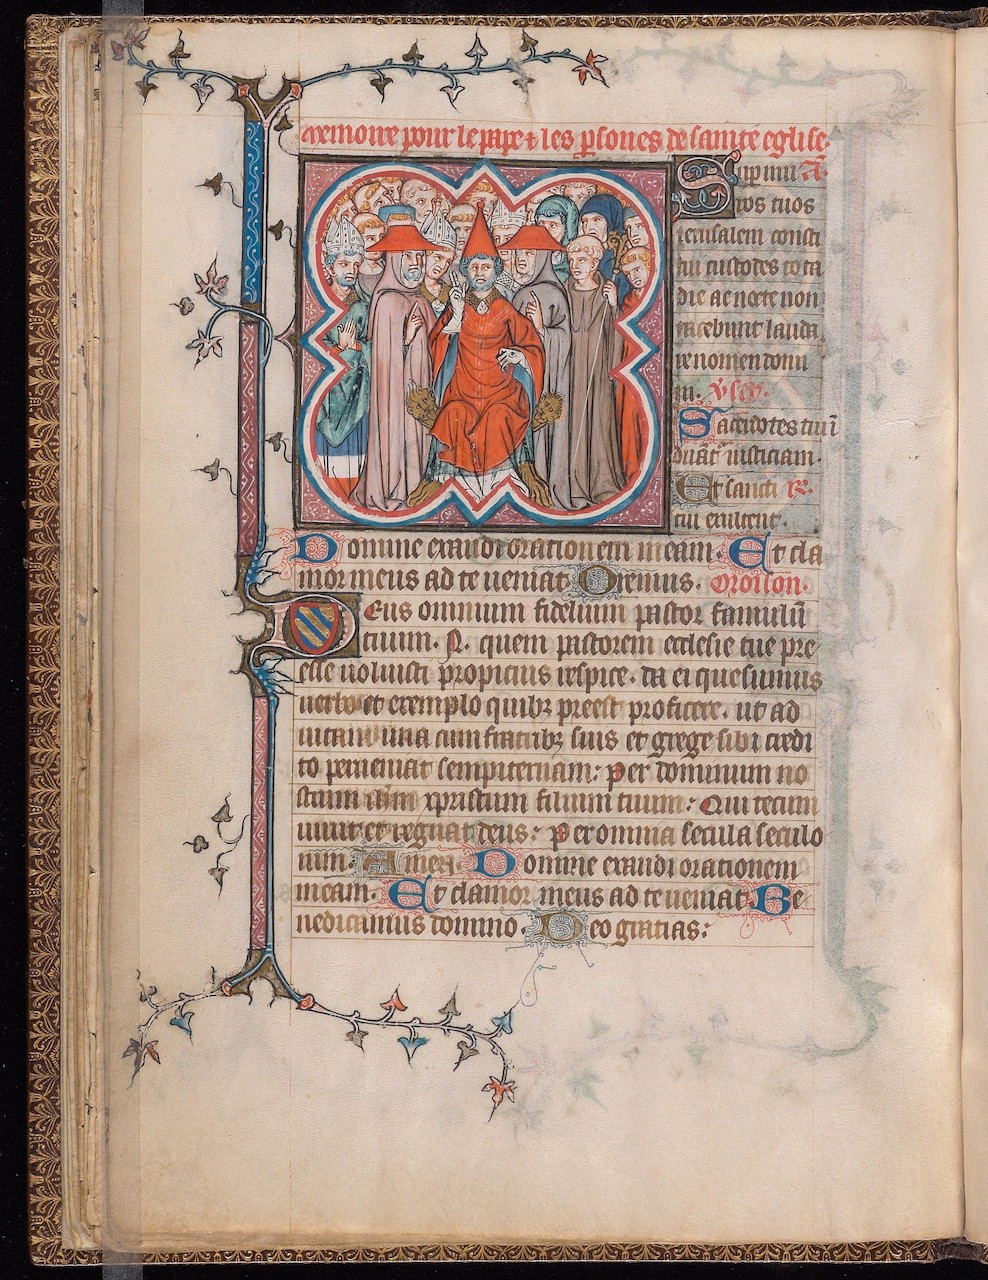 Memoire pour le pape ⁊ les p̱sones de sainte eglise.
Sup̱ mu a̅.
ros tuos
ierusalem consti
tui custodes tota
die ac nocte non
tacebunt lauda
re nomen domi
ni. v̅s̅.
Sacerdotes tui ī
duāt iusticiam.
Et sancti ℟.
tui exultent.
Domine exaudi orationem meam. Et cla
mor meus ad te ueniat. Oremus. Oroison.
Deus omnium fidelium pastor famulū
tuum. N. quem pastorem ecclesie tue pre
esse uoluisti propicius respice. da ei quesumus
uerbo et exemplo quibꝫ preest proficere. ut ad
uitam una cum fratribꝫ suis et grege sibi credi
to perueniat sempiternam: per dominum no
strum ihm̅ xpristum filium tuum: Qui tecum
uiuit et regnat deus: Per omnia secula seculo
rum. Amen. Domine exaudi orationem
meam. Et clamor meus ad te ueniat. Be
nedicamus domino. Deo gratias: